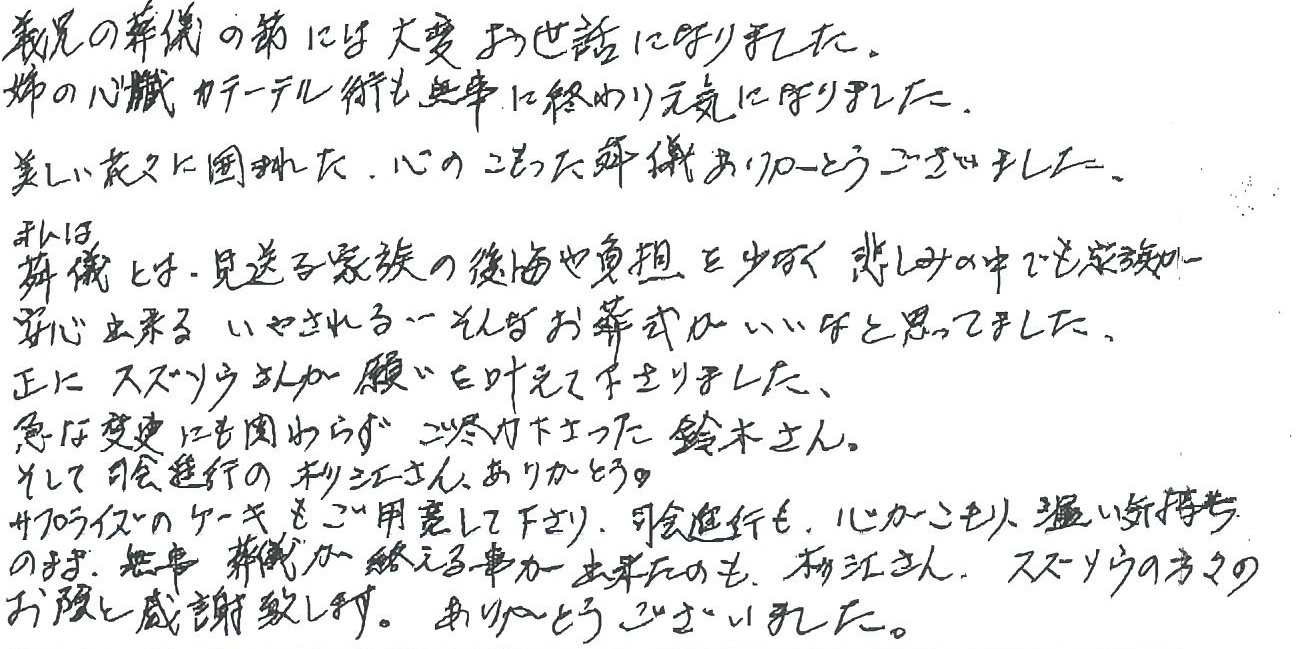 義兄の葬儀の節には大変お世話になりました。
姉の心臓カテーテル術も無事に終わり元気になりました。
美しい花々に囲まれた、心のこもった葬儀ありがとうございました。
私は
葬儀とは、見送る家族の後悔や負担を少なく 悲しみの中でも家族が
安心出来る いやされる…そんなお葬式がいいなと思ってました。
正に スズソウさんが願いを叶えて下さりました、
急な変更にも関わらず ご尽力下さった 鈴木さん。
そして 司会進行の 杉江さん、ありがとう。
サプライズのケーキもご用意して下さり、司会進行も、心がこもり、温い気持ち
のまま、無事 葬儀が終える事が出来たのも、杉江さん、スズソウの方々の
お陰と感謝致します。 ありがとうございました。